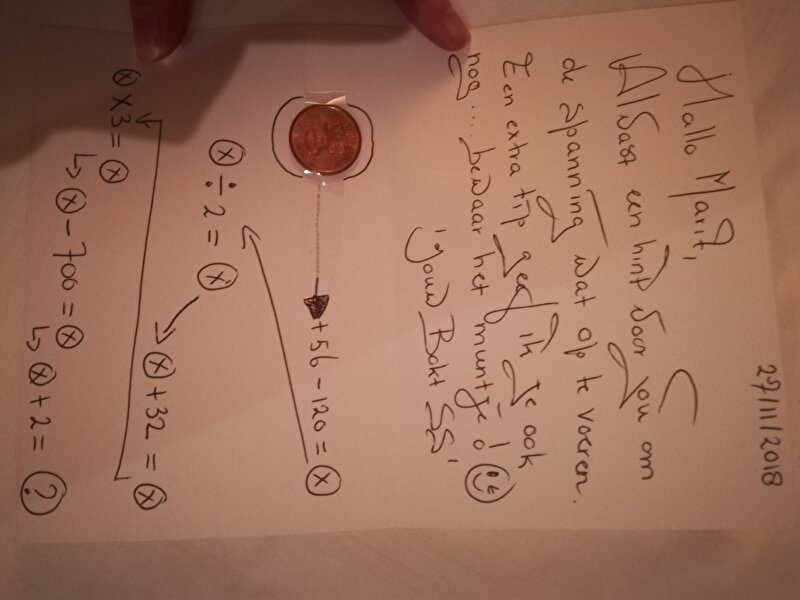 27/11/2018
Hallo Marit,
Alvast een hint voor jou om
de spanning wat op te voeren.
Een extra tip geef ik je ook
nog.... bewaar het muntje!
Jouw Bokt SS'
+56-120=ⓧ
ⓧ÷2=ⓧ
ⓧ+32=ⓧ
ⓧx3=ⓧ
ⓧ-700=ⓧ
ⓧ+2=?